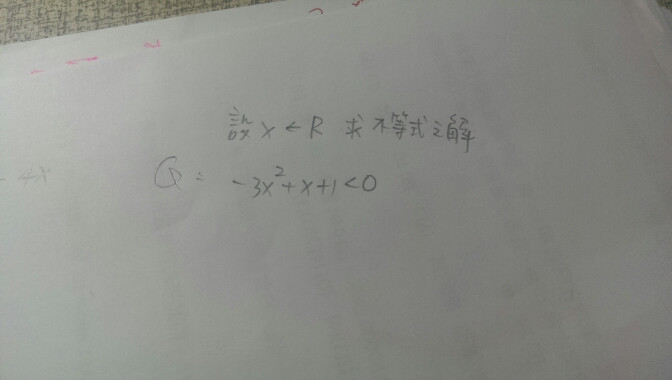 設 x ∈ R 求不等式之解
Q: -3x²+x+1<0